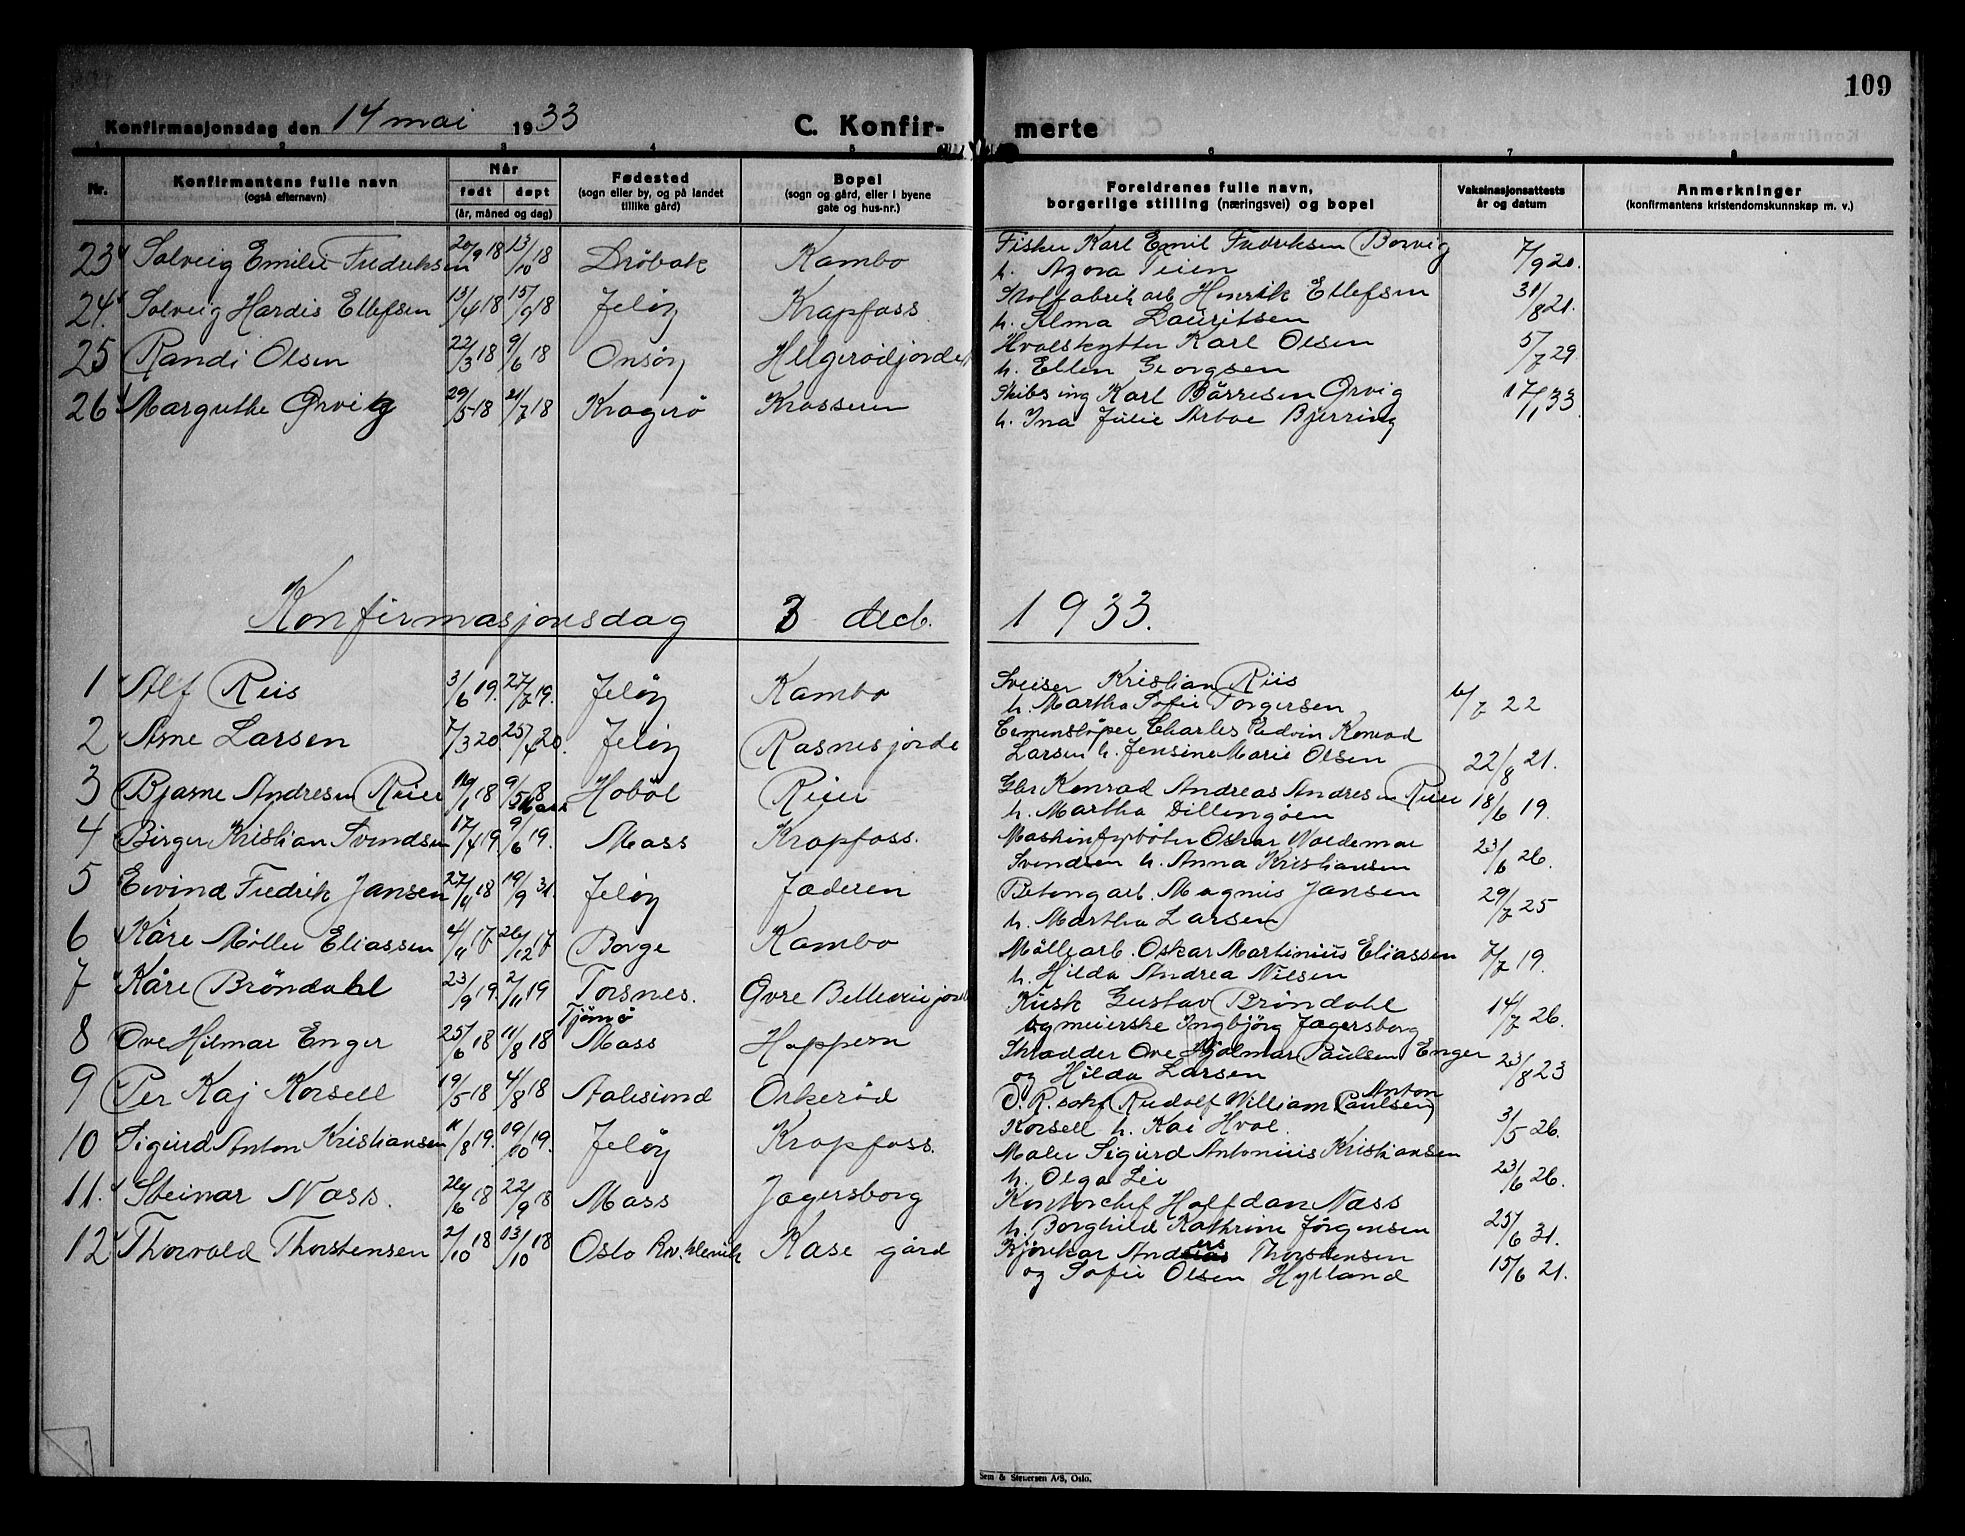 109
Konfirmasjonsdag den 14 mai 1933 C. Konfir- merte
1 2 3 4 5 6 7 8
Nr. Konfirmantens fulle navn (også efternavn) Når født døpt (år, måned og dag) Fødested (sogn eller by, og på landet tillike gård) Bopel (sogn og gård, eller i byene gate og hus-nr.) Foreldrenes fulle navn, borgerlige stilling (næringsvei) og bopel Vaksinasjonsattests år og datum Anmerkninger (konfirmantens kristendomskunnskap m. v.)
23 Solveig Emilie Fredriksen 20/9 18 13/10 18 Dröbak Kambo Fisker Karl Emil Fredriksen Borvig 7/9 20.
h. Agora Teien
24. Solveig Hardis Ellefsen 13/4 18 15/9 18 Jelöy Krapfoss Stolfabrik arb Henrik Ellefsen 31/8 21.
h. Alma Lauritsen
25 Randi Olsen 22/3 18 9/6 18 Onsöy Helgerödjordet Hvalskytter Karl Olsen 5/7 29
h. Ellen Georgsen
26 Margrethe Ørvig 29/5 18 21/7 18 Kragerö Krosseren Skibs ing Karl Börresen Ørvig 17/1 33
h. Ina Julie Arboe Bjerring
Konfirmasjonsdag 3 decb. 1933.
1 Alf Riis 3/6 19. 27/7 19. Jelöy Kambo Sveiser Kristian Riis
h. Martha Sofie Torgersen 6/7 22
2 Arne Larsen 7/3 20 25/4 20. Jelöy Rosnesjorde Cementstöper Charles Edvin Konrad
Larsen h. Jensine Marie Olsen 22/8 21.
3 Bjarne Andresen Reier 16/1 18 9/5 18 Hoböl Reier Gbr Konrad Andreas Andresen Reier 18/6 19.
h. Martha Dillingöen
4 Birger Kristian Svendsen 17/4 19. 9/6 19. Moss Krapfoss. Maskinfyrböter Oskar Waldemar
Svendsen h. Anna Kristiansen 23/6 26.
5 Eivind Fredrik Jansen 27/4 18 19/9 31. Jelöy Jæderen Betongarb. Magnus Jansen 29/7 25
h. Martha Larsen
6 Kåre Möller Eliassen 4/11 17 26/12 17 Borge Kambo Möllearb. Oskar Martinius Eliassen 7/7 19.
h. Hilda Andrea Nilsen
7 Kåre Bröndahl 23/9 19. 2/11 19 Torsnes. Øvre Bellevuejord Kusk Gustav Bröndahl 14/7 26.
og meierske Ingbjörg Jægersborg
8 Ove Hilmar Enger 25/6 18 11/8 18 Tjömö Moss Hoppern Skrædder Ove Hjalmar Paulsen Enger 23/8 23
og Hilda Larsen
9 Per Kaj Korsell 19/5 18 4/8 18 Aalesund Orkeröd O. R. sakf Rudolf William Anton (Paulsen)
Korsell h. Kai Hval. 3/5 26.
10 Sigurd Anton Kristiansen 11/8 19. 19/10 19. Jelöy Krapfoss. Maler Sigurd Antonius Kristiansen
h. Olga Lei 23/6 26.
11. Steinar Næss. 26/6 18 22/9 18 Moss Jægersborg Kontorchef Halfdan Næss
h. Borghild Kathrine Jörgensen 25/6 31.
12 Thorvald Thorstensen 2/10 18 13/10 18 Oslo Kv.klinik Kase gård Kjörekar Anders Thorstensen
og Sofie Olsen Hylland 15/6 21.
Sem & Stenersen A/S, Oslo.